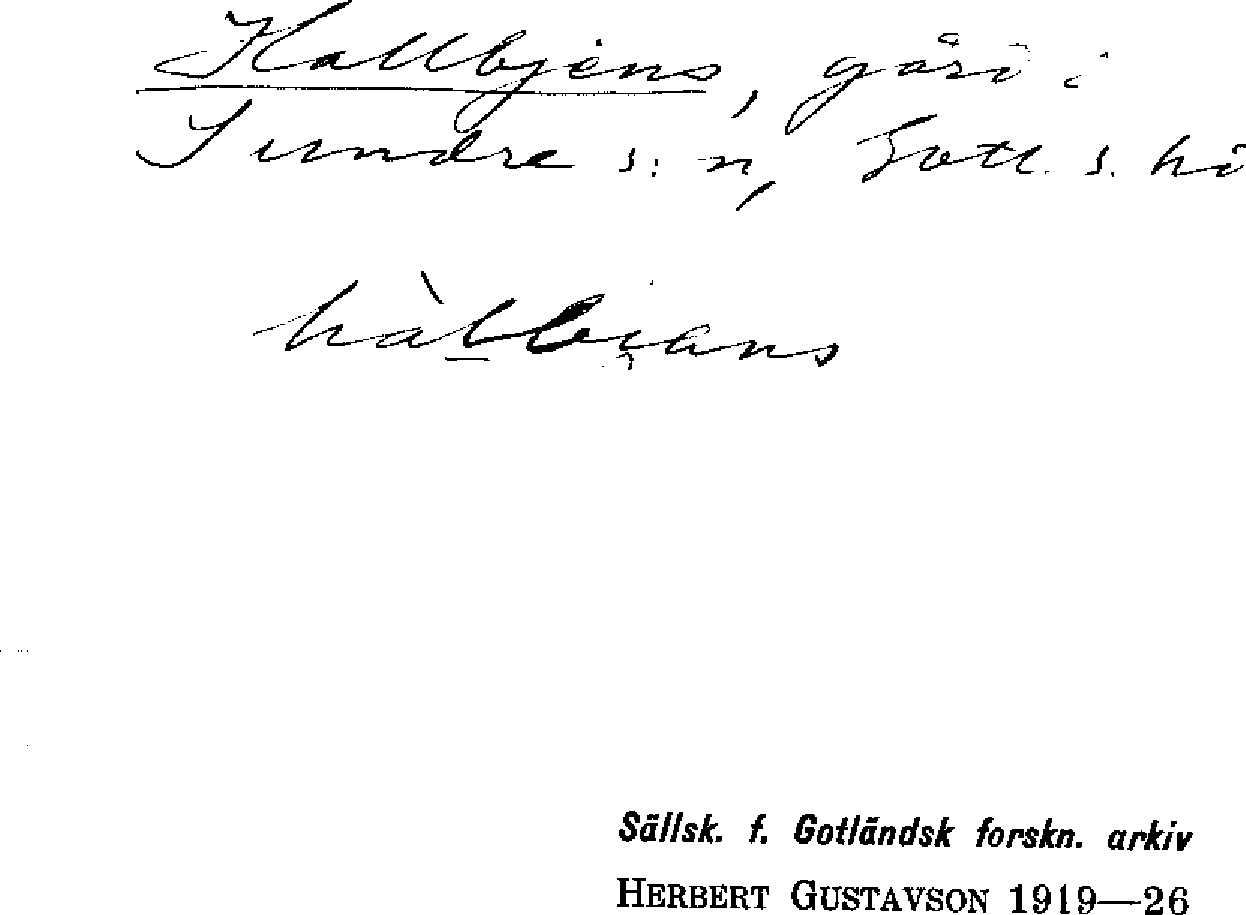 Hallbjens, gård i
Sundre s:n, Gotl. s. hä
hàlbians
Sällsk. f. Gotländsk forskn. arkiv
HERBERT GUSTAVSON 1919—26